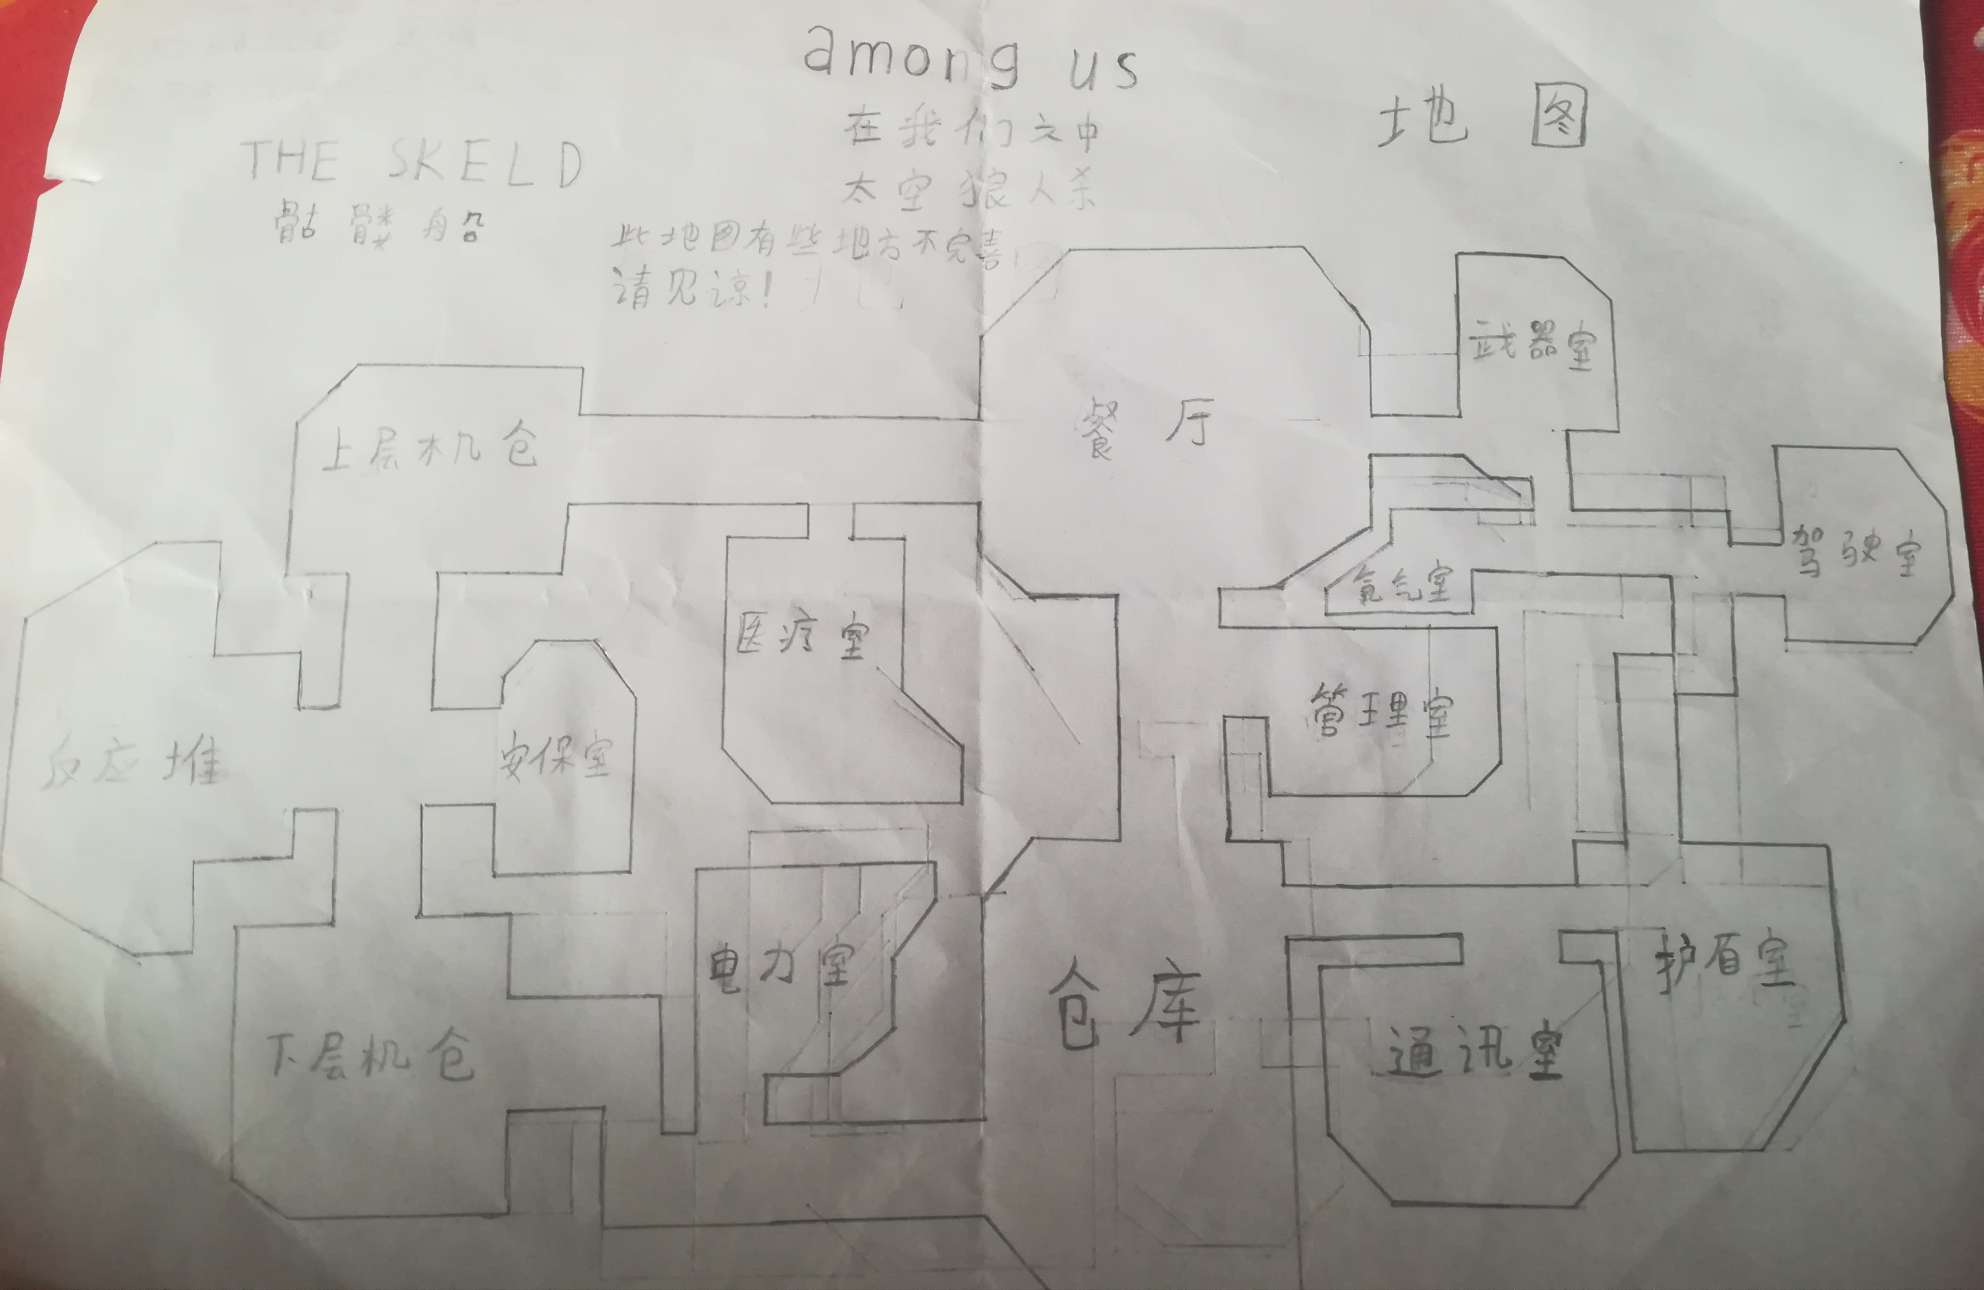 among us
在我们之中
太空狼人杀
地图
THE SKELD
骷髅船
此地图有些地方不完善,
请见谅!
餐厅
武器室
上层机仓
驾驶室
氧气室
医疗室
管理室
反应堆
安保室
电力室
护盾室
仓库
通讯室
下层机仓